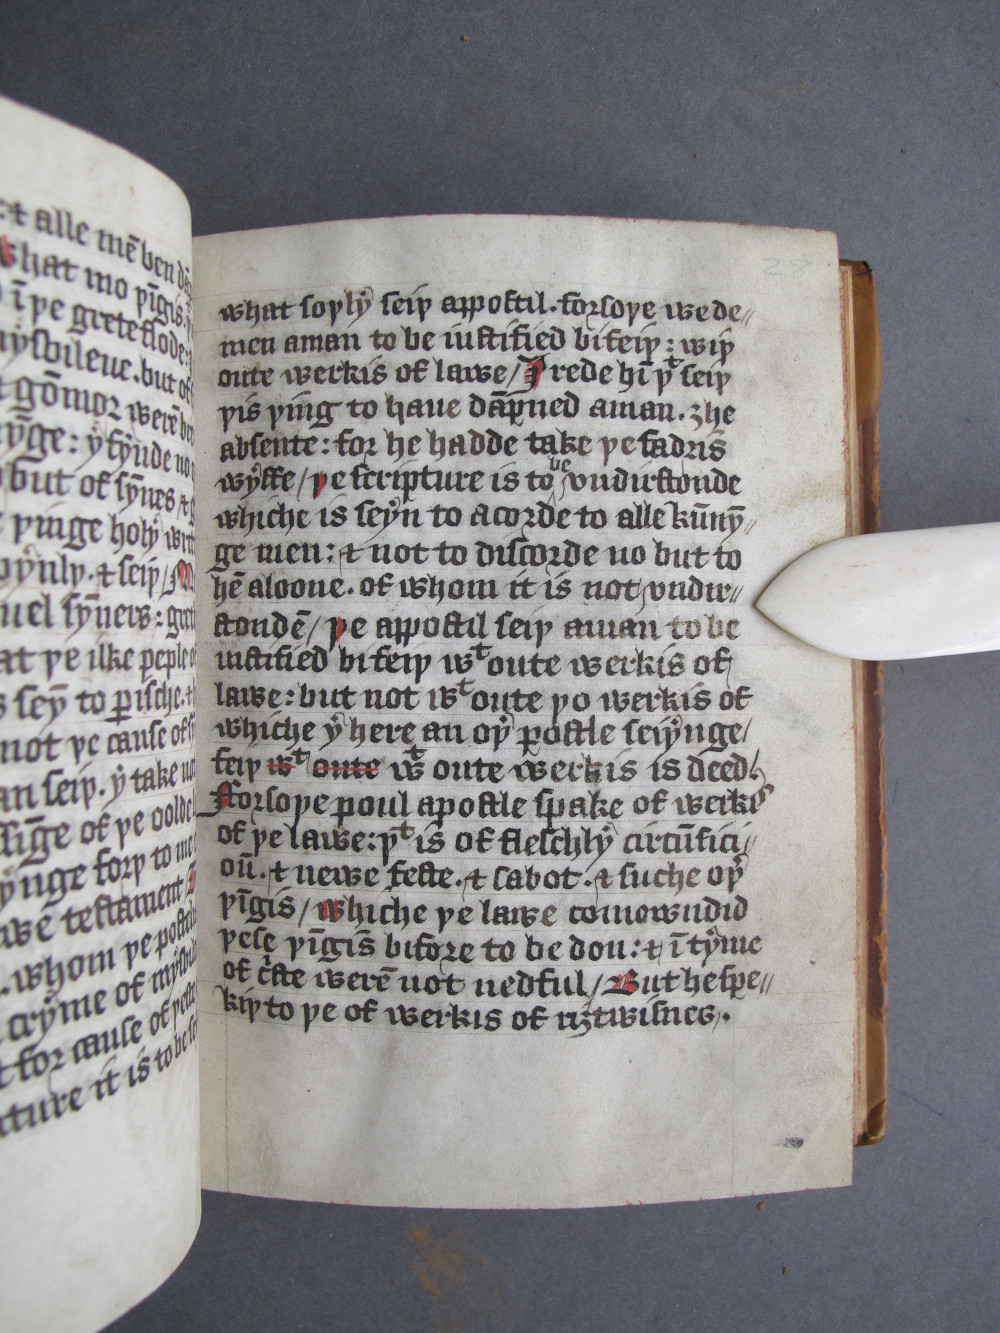 : ⁊ alle mē ben
what mo þīgis
ī þe grete flode:
mysbileue. but of
gōmor werē
: ẏ fynde no
but of synes ⁊
þinge holy writ
⁊ seiþ /
uel syners: gret
at þe ilke peple
seȳ to ꝑische. ⁊
not þe cause of
an seiþ. ẏ take
of þe oolde
ynge forþ to me
we testament
. whom þe
cryme of
⁊ for cause of
ture it is to be
28
what soþlẏ seiþ appostil. forsoþe we de//
men aman to be iustified bi feiþ: wiþ
oute werkis of lawe / I rede hī þͭ seiþ
þis þing to haue dāpned aman. ȝhe
absente: for he hadde take þe fadris
wẏffe / þe scripture is to be vndirstonde
whiche is seẏn to acorde to alle kūnȳ//
ge men: ⁊ not to discorde no but to
hē aloone. of whom it is not vndir//
stondē / þe appostil seiþ aman to be
iustified bi feiþ wͭ oute werkis of
lawe: but not wͭ oute þo werkis of
whiche ẏ here an oþ̾ postle seiẏnge/
feiþ wͭ oute wͭ oute werkis is deed
Forsoþe poul apostle spake of werkis
of þe lawe: þͭ is of fleschlẏ circūsici/
oū. ⁊ newe feste. ⁊ sabot. ⁊ suche oþ̾
þīgis / Whiche þe lawe comowndid
þese þīgis bifore to be don: ⁊ ī tẏme
of c̄ste werē not nedful / But he spe//
kiþ to þe of werkis of riȝtwisnes.